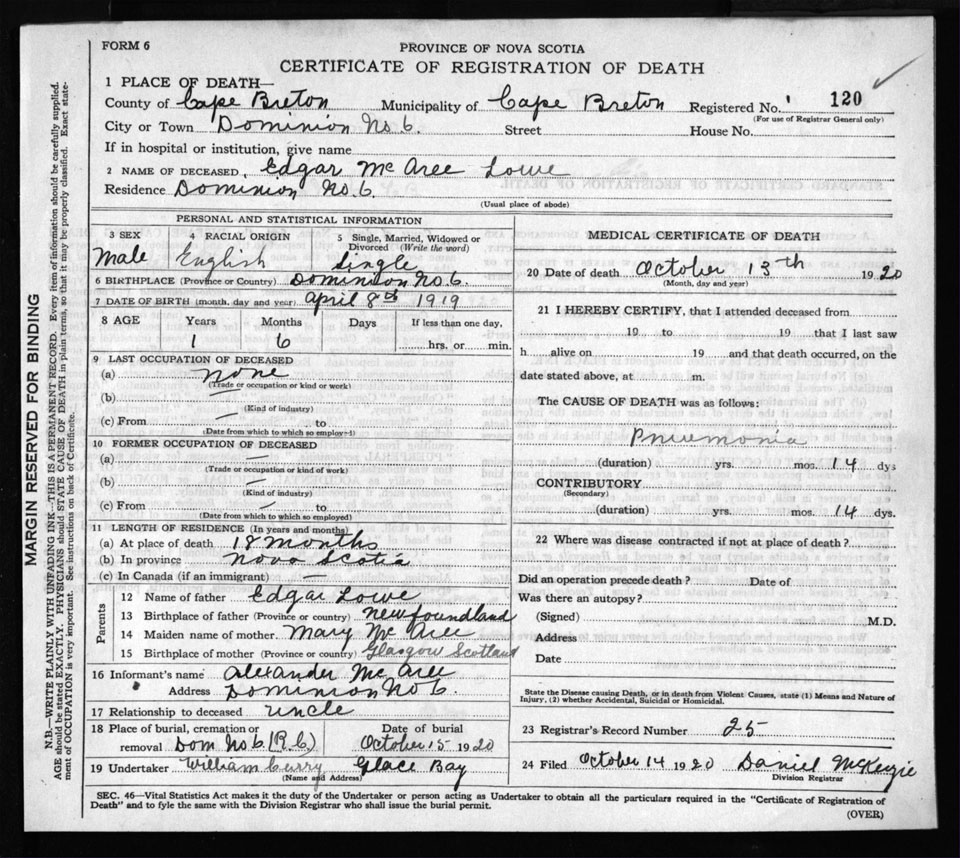 FORM 6
PROVINCE OF NOVA SCOTIA
CERTIFICATE OF REGISTRATION OF DEATH
1 PLACE OF DEATH—
County of Cape Breton Municipality of Cape Breton Registered No. 120
(For use of Registrar General only)
City or Town Dominion No. 6. Street House No.
If in hospital or institution, give name
2 NAME OF DECEASED Edgar Mc Aree Lowe
Residence Dominion No 6.
(Usual place of abode)
PERSONAL AND STATISTICAL INFORMATION
3 SEX 4 RACIAL ORIGIN 5 Single, Married, Widowed or Divorced (Write the word)
Male English Single
6 BIRTHPLACE (Province or Country) Dominion No. 6.
7 DATE OF BIRTH (month, day and year) April 8th 1919
8 AGE Years Months Days If less than one day,
1 6 hrs. or min.
9 LAST OCCUPATION OF DECEASED
(a) None
(Trade or occupation or kind or work)
(b) —
(Kind of industry)
(c) From — to
(Date from which to which so employed)
10 FORMER OCCUPATION OF DECEASED
(a) —
(Trade or occupation or kind of work)
(b) —
(Kind of industry)
(c) From — to
(Date from which to which so employed)
11 LENGTH OF RESIDENCE (In years and months)
(a) At place of death 18 months
(b) In province Nova Scotia
(c) In Canada (if an immigrant) —
Parents
12 Name of father Edgar Lowe
13 Birthplace of father (Province or country) Newfoundland
14 Maiden name of mother. Mary Mc Aree
15 Birthplace of mother (Province or country) Glasgow Scotland
16 Informant's name Alexander Mc Aree
Address Dominion No 6.
17 Relationship to deceased uncle
18 Place of burial, cremation or Date of burial
removal Dom No 6 (R.C) October 15 1920
19 Undertaker William Curry Glace Bay
(Name and Address)
MEDICAL CERTIFICATE OF DEATH
20 Date of death October 13th 1920
(Month, day and year)
21 I HEREBY CERTIFY, that I attended deceased from
19 to 19 that I last saw
h alive on 19 and that death occurred, on the
date stated above, at m.
The CAUSE OF DEATH was as follows:
Pneumonia
(duration) yrs. mos. 14 dys
CONTRIBUTORY
(Secondary)
(duration) yrs. mos. 14 dys.
22 Where was disease contracted if not at place of death?
Did an operation precede death? Date of
Was there an autopsy?
(Signed) M.D.
Address
Date
State the Disease causing Death, or in death from Violent Causes, state (1) Means and Nature of
Injury, (2) whether Accidental, Suicidal or Homicidal.
23 Registrar's Record Number 25
24 Filed October 14 1920 Daniel McKenzie
Division Registrar
SEC. 46—Vital Statistics Act makes it the duty of the Undertaker or person acting as Undertaker to obtain all the particulars required in the "Certificate of Registration of
Death" and to fyle the same with the Division Registrar who shall issue the burial permit.
(OVER)
MARGIN RESERVED FOR BINDING
N.B.—WRITE PLAINLY WITH UNFADING INK—THIS IS A PERMANENT RECORD. Every item of information should be carefully supplied.
AGE should be stated EXACTLY. PHYSICIANS should STATE CAUSE OF DEATH in plain terms, so that it may be properly classified. Exact state-
ment of OCCUPATION is very important. See instructions on back of Certificate.